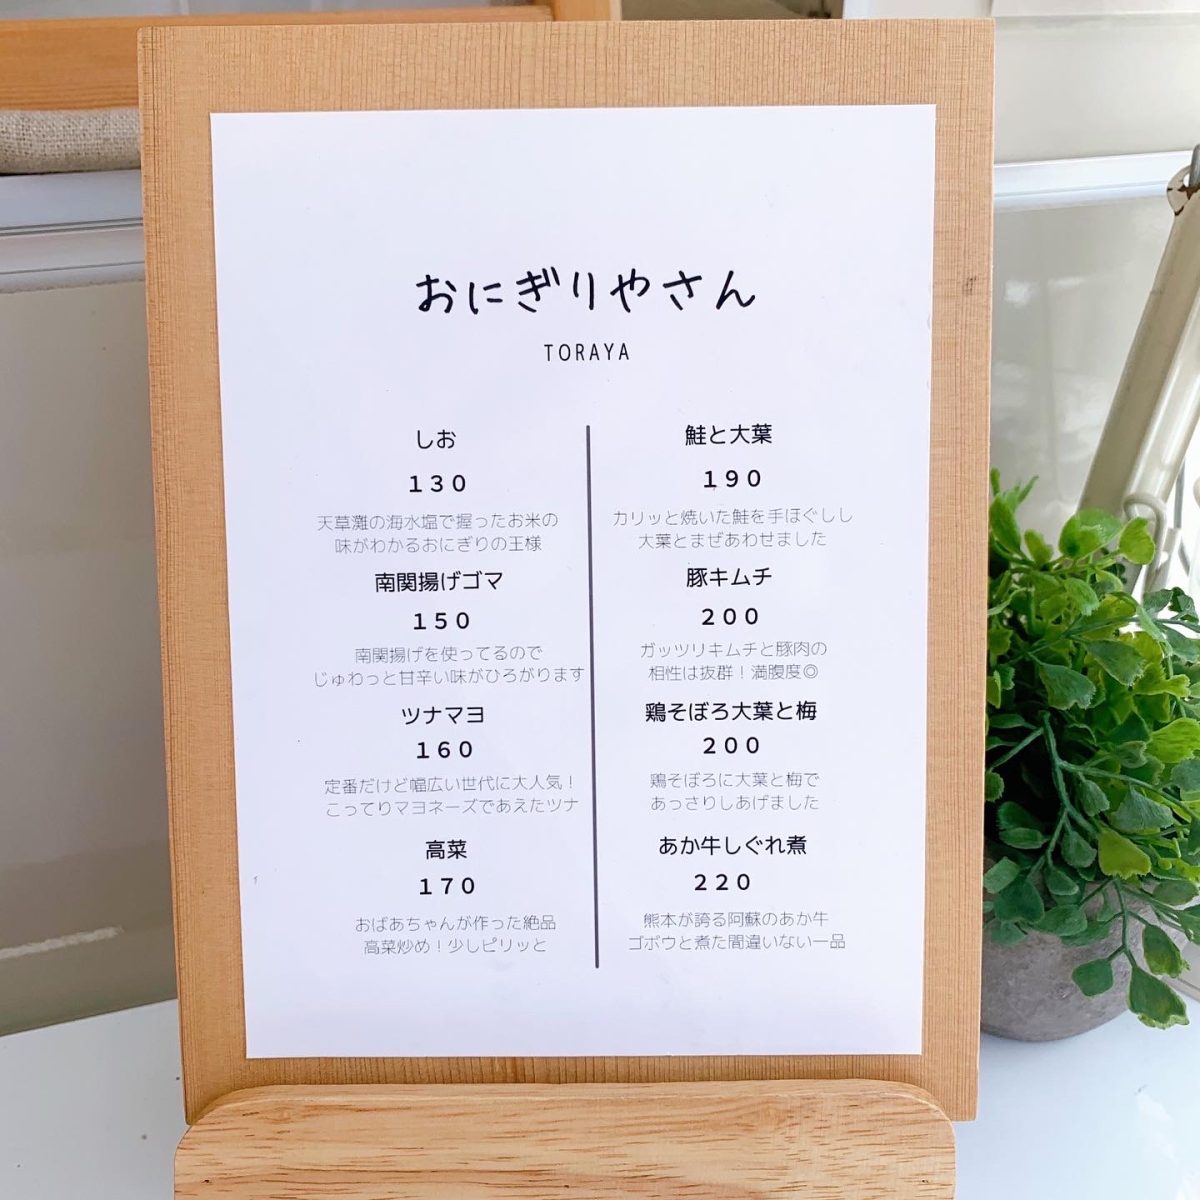 おにぎりやさん
TORAYA
しお
130
天草灘の海水塩で握ったお米の
味がわかるおにぎりの王様
南関揚げゴマ
150
南関揚げを使ってるので
じゅわっと甘辛い味がひろがります
ツナマヨ
160
定番だけど幅広い世代に大人気！
こってりマヨネーズであえたツナ
高菜
170
おばあちゃんが作った絶品
高菜炒め！少しピリッと
鮭と大葉
190
カリッと焼いた鮭を手ほぐしし
大葉とまぜあわせました
豚キムチ
200
ガッツリキムチと豚肉の
相性は抜群！満腹度◎
鶏そぼろ大葉と梅
200
鶏そぼろに大葉と梅で
あっさりしあげました
あか牛しぐれ煮
220
熊本が誇る阿蘇のあか牛
ゴボウと煮た間違いない一品